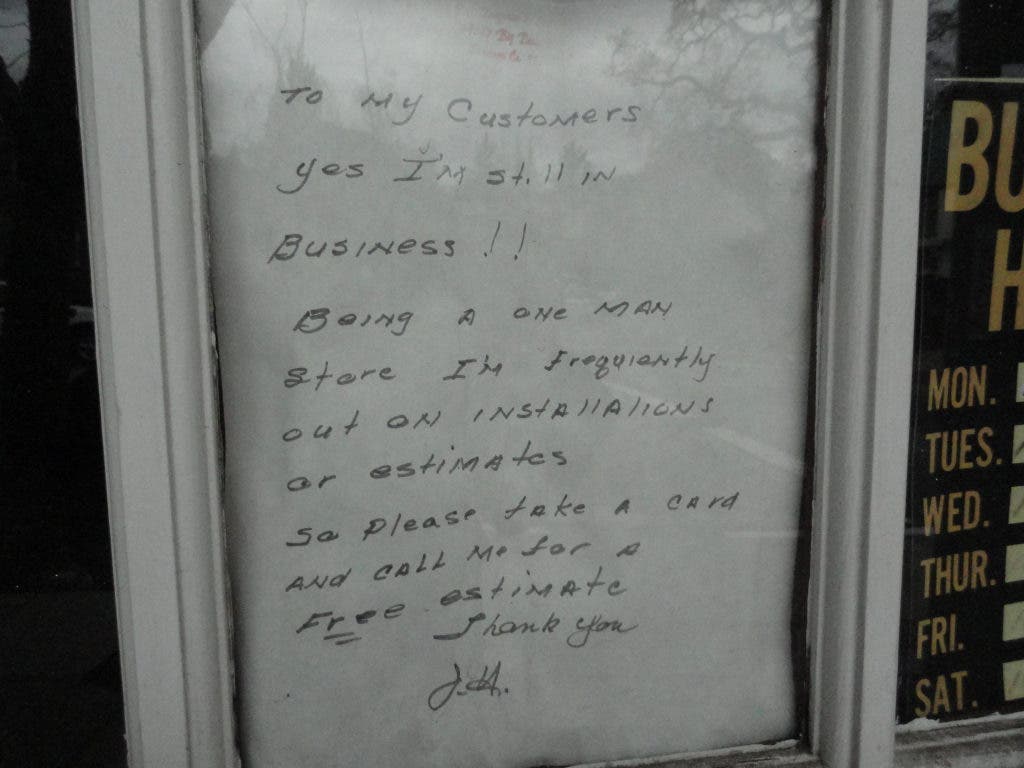 To My Customers
yes I'm still in
Business !!
Being a one man
store I'm frequiently
out on installations
or estimates
So please take a card
and call me for a
Free estimate
Thank you
J.H.
BU
H
MON.
TUES.
WED.
THUR.
FRI.
SAT.